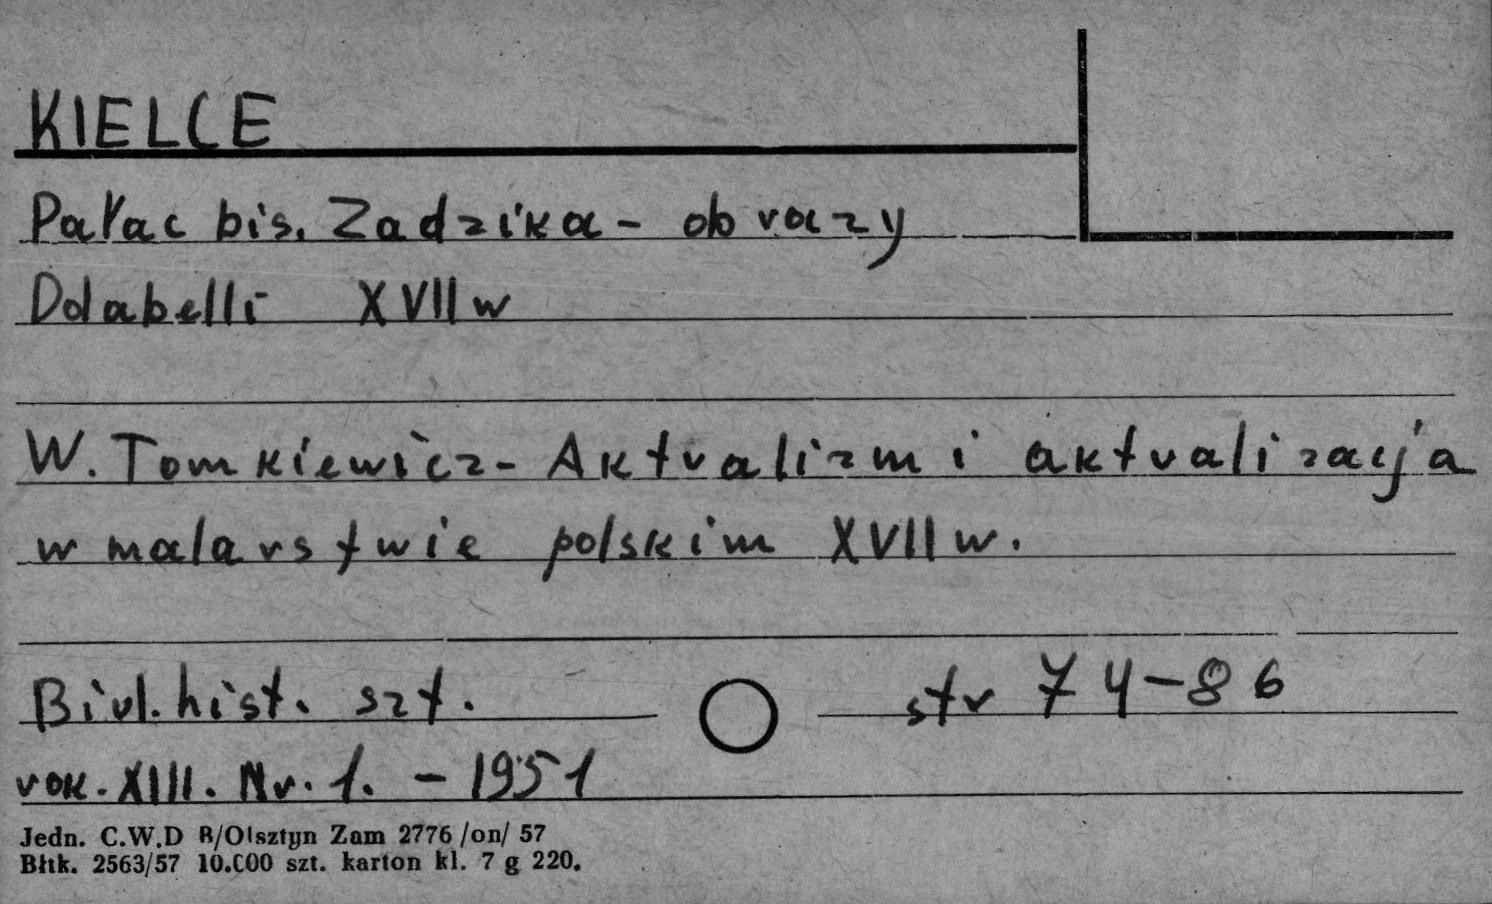 KIELCE
Pałac bis. Zadzika - obrazy
Dolabelli XVII w
W. Tomkiewicz - Aktualizm i aktualizacja
w malarstwie polskim XVII w.
Biul. hist. szt. str 74-86
rok. XIII. Nr. 1. - 1951
Jedn. C.W.D R/Olsztyn Zam 2776 /on/ 57
Błtk. 2563/57 10.000 szt. karton kl. 7 g 220.